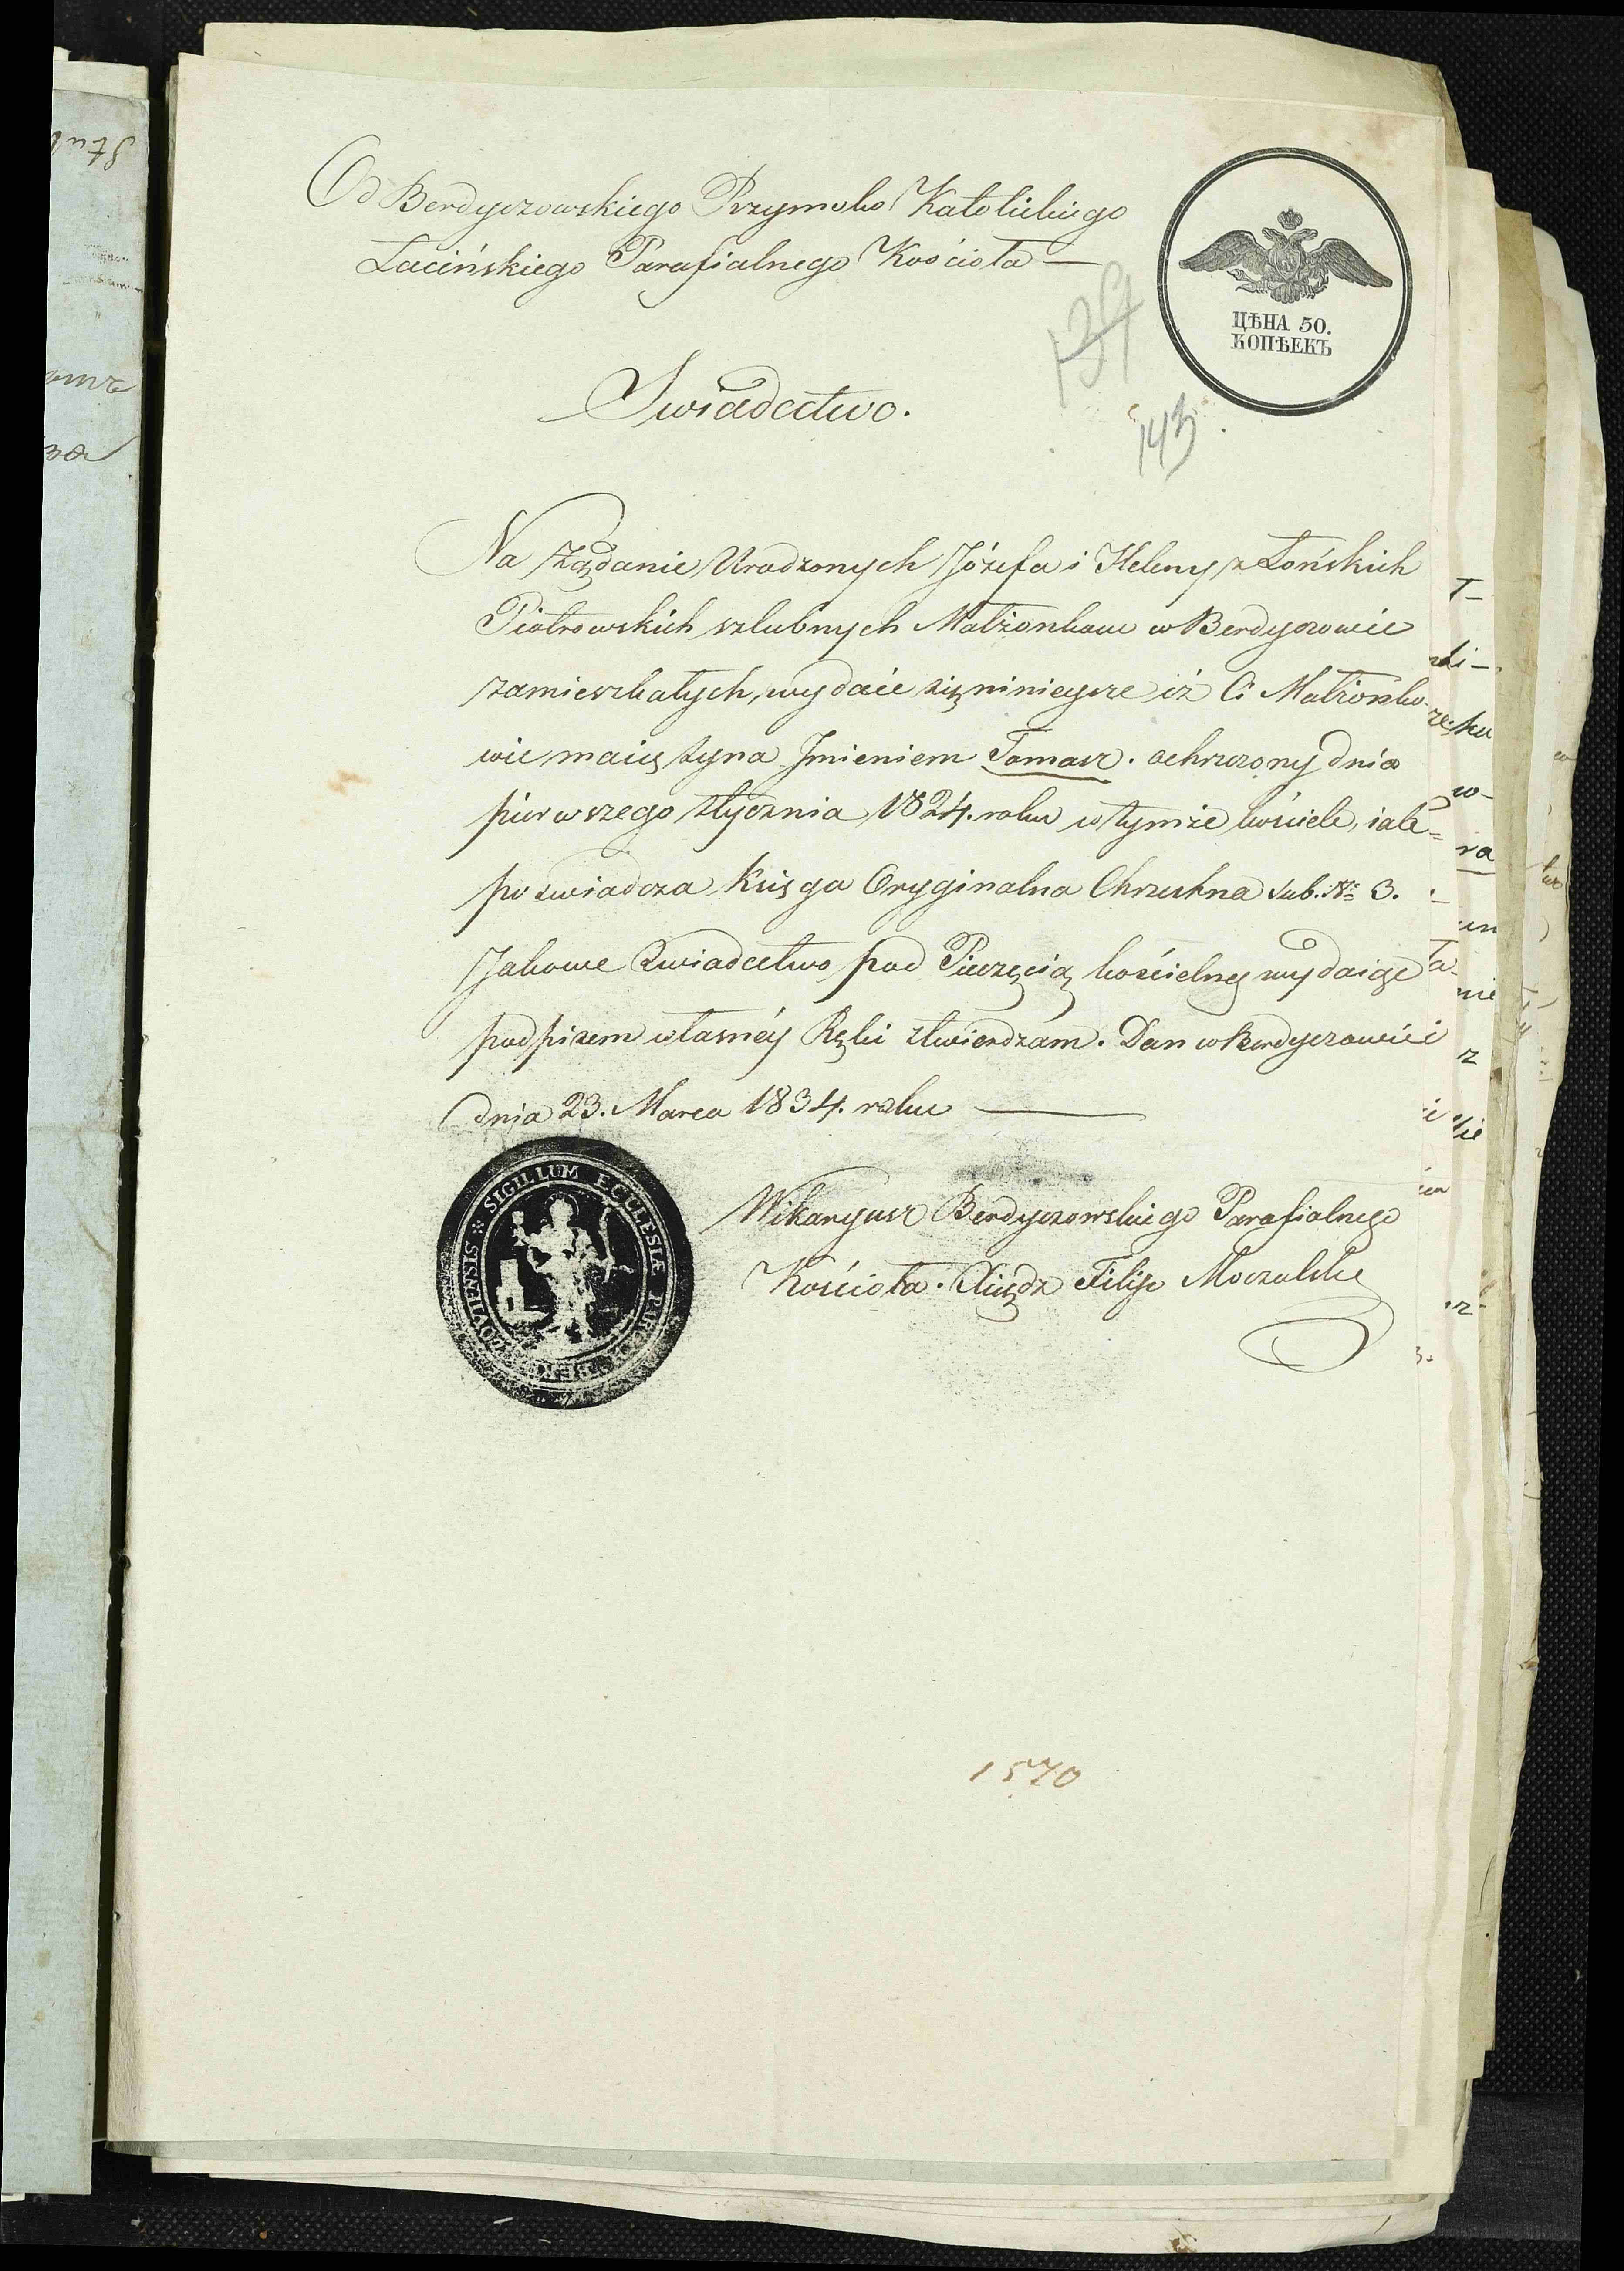 Od Berdyczowskiego Rzymsko Katolickiego
Łacińskiego Parafialnego Kościoła —
ЦѢНА 50.
КОПѢЕКЪ
143
Swiadectwo.
Na Żądanie Urodzonych Józefa i Heleny z Łońskich
Piotrowskich szlubnych Małżonkow w Berdyczowie
zamieszkałych, wydaie się ninieysze iż Ci Małżonko-
wie maią syna Jmieniem Tomasz. ochrzczony dnia
pierwszego stycznia 1824. roku w tymże kościele, iak
poswiadcza Księga Oryginalna Chrzestna Sub. № 3.
Jakowe Swiadectwo pod Pieczęcią kościelną wydaiąc
podpisem własnéy Ręki ztwierdzam. Dan w Berdyczowie
dnia 23. Marca 1834. roku —
SIGILLUM ECCLESIÆ
Wikaryusz Berdyczowskiego Parafialnego
Kościoła. Xiądz Filip Moczulski
1570